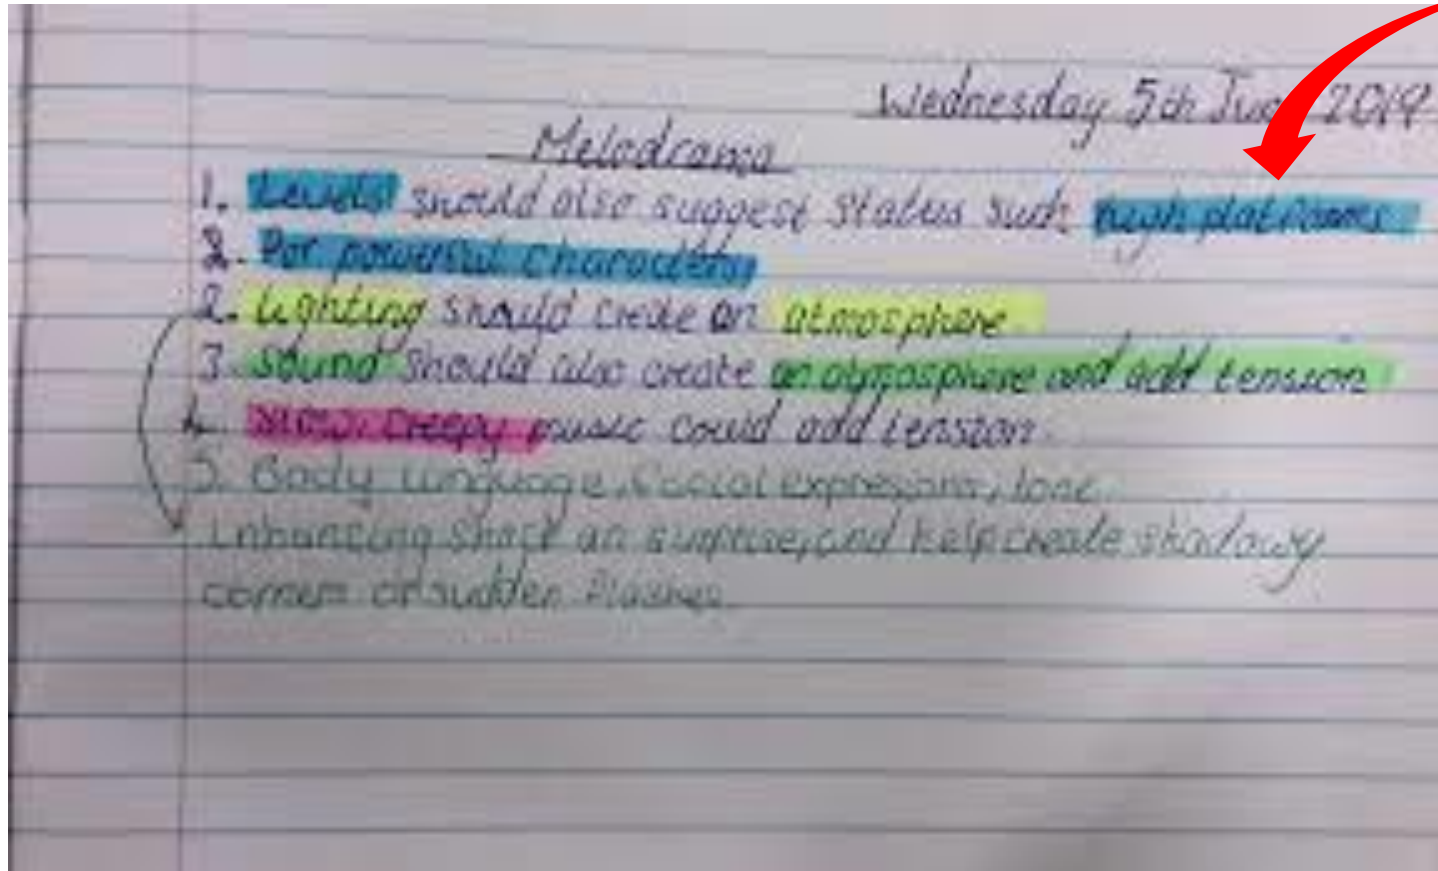 Wednesday 5th June 2019
Melodrama
1. Levels should also suggest status such high platforms
2. For powerful characters
2. Lighting should create an atmosphere.
3. Sound should also create an atymosphere and add tension
4. Slow, creepy music could add tension.
5. Body language, facial expresions, tone.
Enhancing shock an surprise, and help create shadowy
corners or sudden flashes.